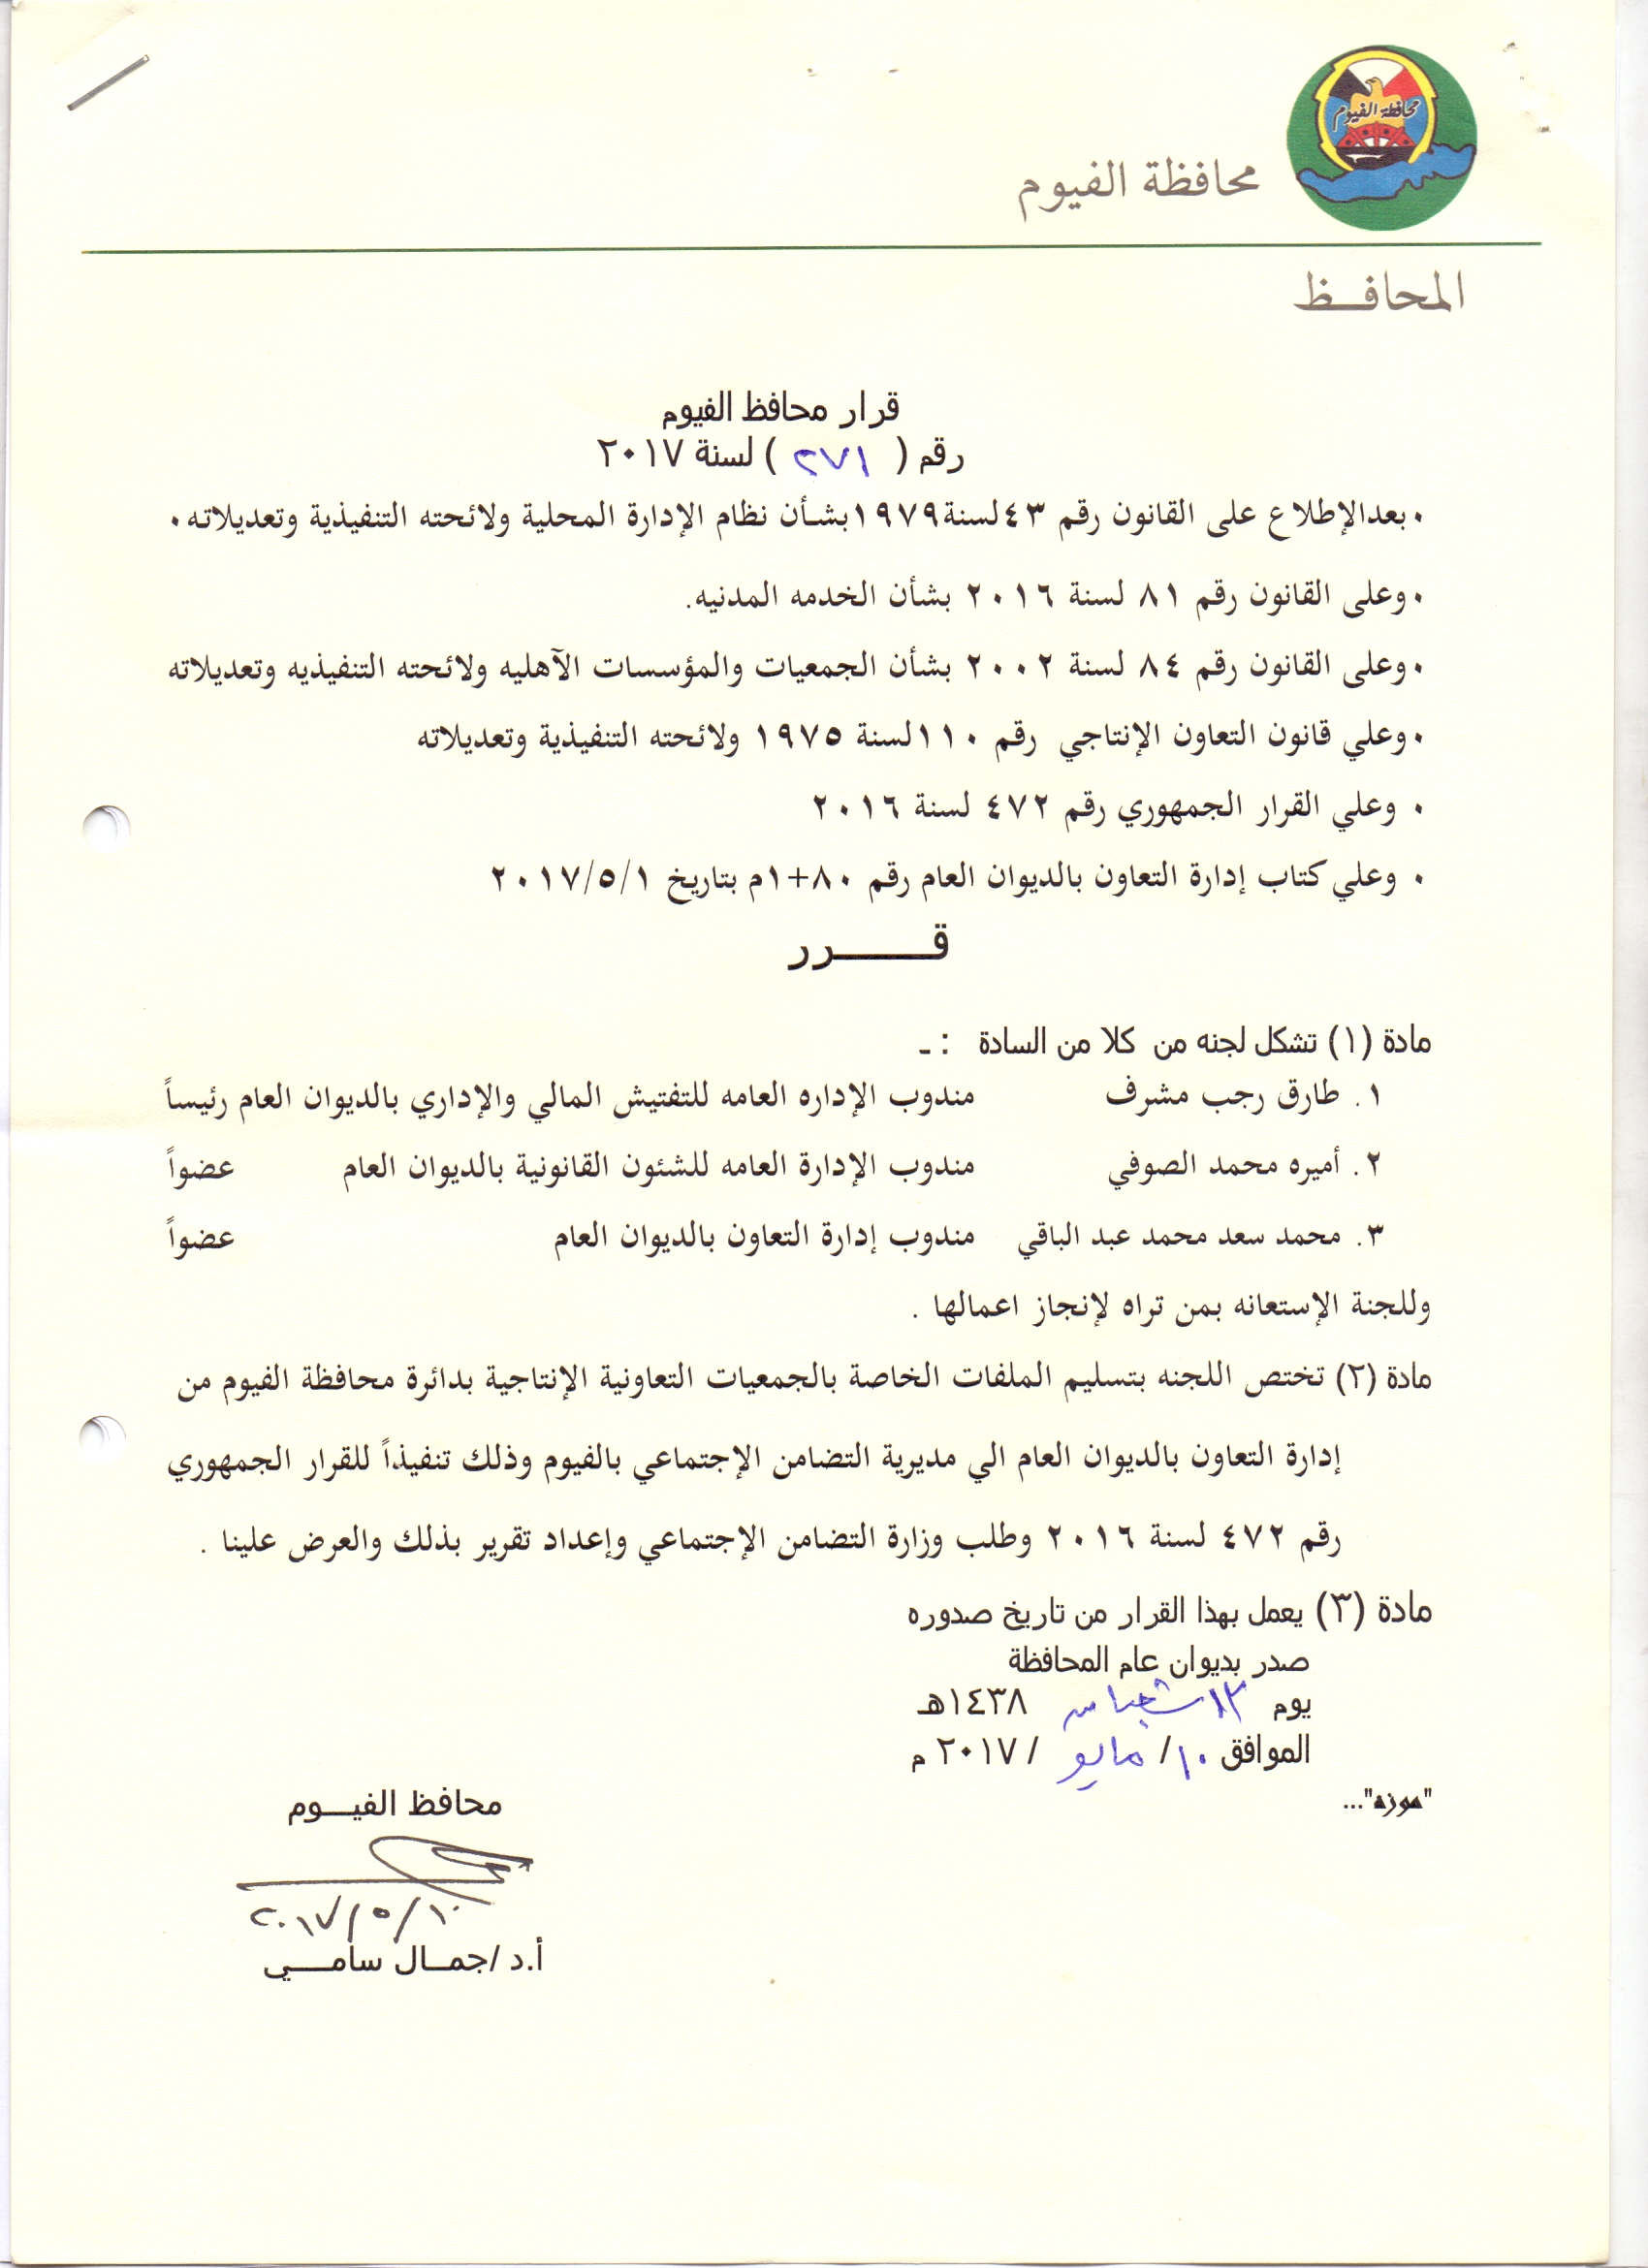 محافظة الفيوم
محافظة الفيوم
المحافـــظ
قرار محافظ الفيوم
رقم ( ٢٧١ ) لسنة ٢٠١٧
• بعدالإطلاع على القانون رقم ٤٣لسنة١٩٧٩بشأن نظام الإدارة المحلية ولائحته التنفيذية وتعديلاته٠
• وعلى القانون رقم ٨١ لسنة ٢٠١٦ بشأن الخدمه المدنيه.
• وعلى القانون رقم ٨٤ لسنة ٢٠٠٢ بشأن الجمعيات والمؤسسات الآهليه ولائحته التنفيذيه وتعديلاته
• وعلي قانون التعاون الإنتاجي رقم ١١٠لسنة ١٩٧٥ ولائحته التنفيذية وتعديلاته
• وعلي القرار الجمهوري رقم ٤٧٢ لسنة ٢٠١٦
• وعلي كتاب إدارة التعاون بالديوان العام رقم ٨٠+١م بتاريخ ٢٠١٧/٥/١
قـــــــرر
مادة (١) تشكل لجنه من كلا من السادة : ـ
١. طارق رجب مشرف مندوب الإداره العامه للتفتيش المالي والإداري بالديوان العام رئيساً
٢. أميره محمد الصوفي مندوب الإدارة العامه للشئون القانونية بالديوان العام عضواً
٣. محمد سعد محمد عبد الباقي مندوب إدارة التعاون بالديوان العام عضواً
وللجنة الإستعانه بمن تراه لإنجاز اعمالها .
مادة (٢) تختص اللجنه بتسليم الملفات الخاصة بالجمعيات التعاونية الإنتاجية بدائرة محافظة الفيوم من
إدارة التعاون بالديوان العام الي مديرية التضامن الإجتماعي بالفيوم وذلك تنفيذاً للقرار الجمهوري
رقم ٤٧٢ لسنة ٢٠١٦ وطلب وزارة التضامن الإجتماعي وإعداد تقرير بذلك والعرض علينا .
مادة (٣) يعمل بهذا القرار من تاريخ صدوره
صدر بديوان عام المحافظة
يوم ١٣ شعبان ١٤٣٨هـ
الموافق ١٠/ مايو / ٢٠١٧ م
"موزه"...
محافظ الفيـــوم
٢٠١٧/٥/١٠
أ.د /جمــال سامـــــي